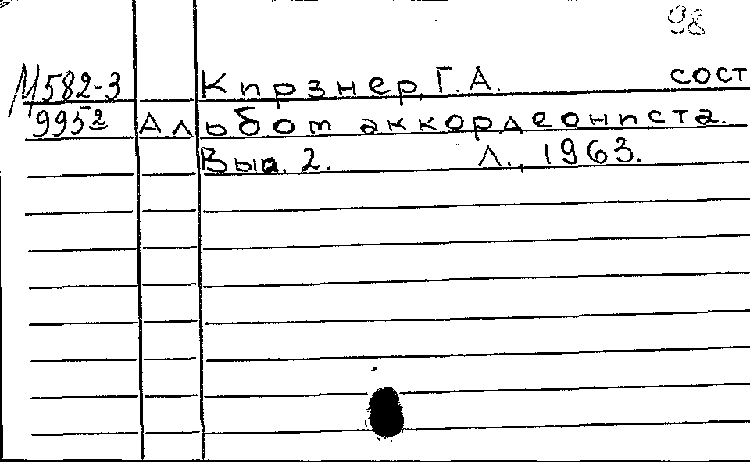 98
М582-3 Кирзнер, Г.А. сост
995² Альбом аккордеониста.
Вып. 2. Л., 1963.